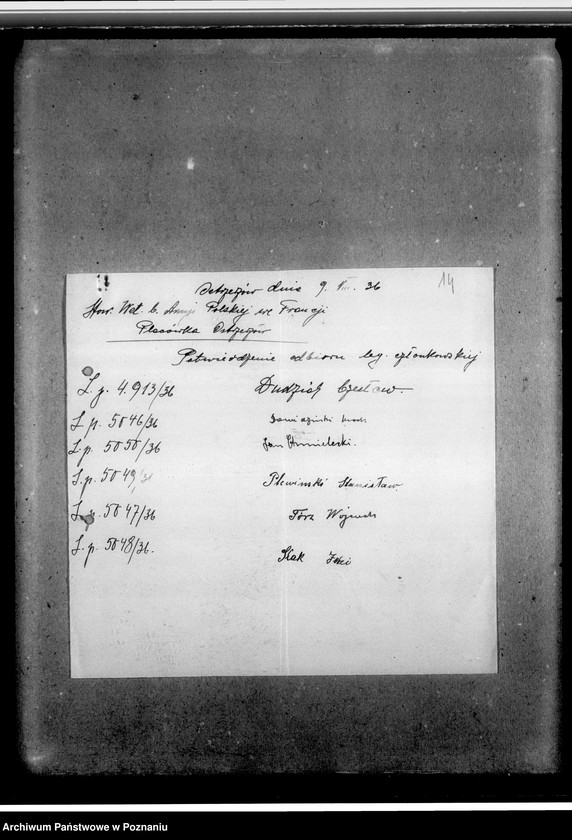 14
Ostrzegów dnia 9. VIII. 36
Stow. Wet. b. Armji Polskiej we Francji
Placówka Ostrzegów
Potwierdzenie odbioru leg. członkowskiej
L. p. 4.913/36 Dudziak Czesław.
L. p. 5046/36
L. p. 5050/36 Jan Chmielecki.
L. p. 5049/36 Plewinski Stanisław
L. p. 5047/36 Wojciech
L. p. 5048/36.
Archiwum Państwowe w Poznaniu